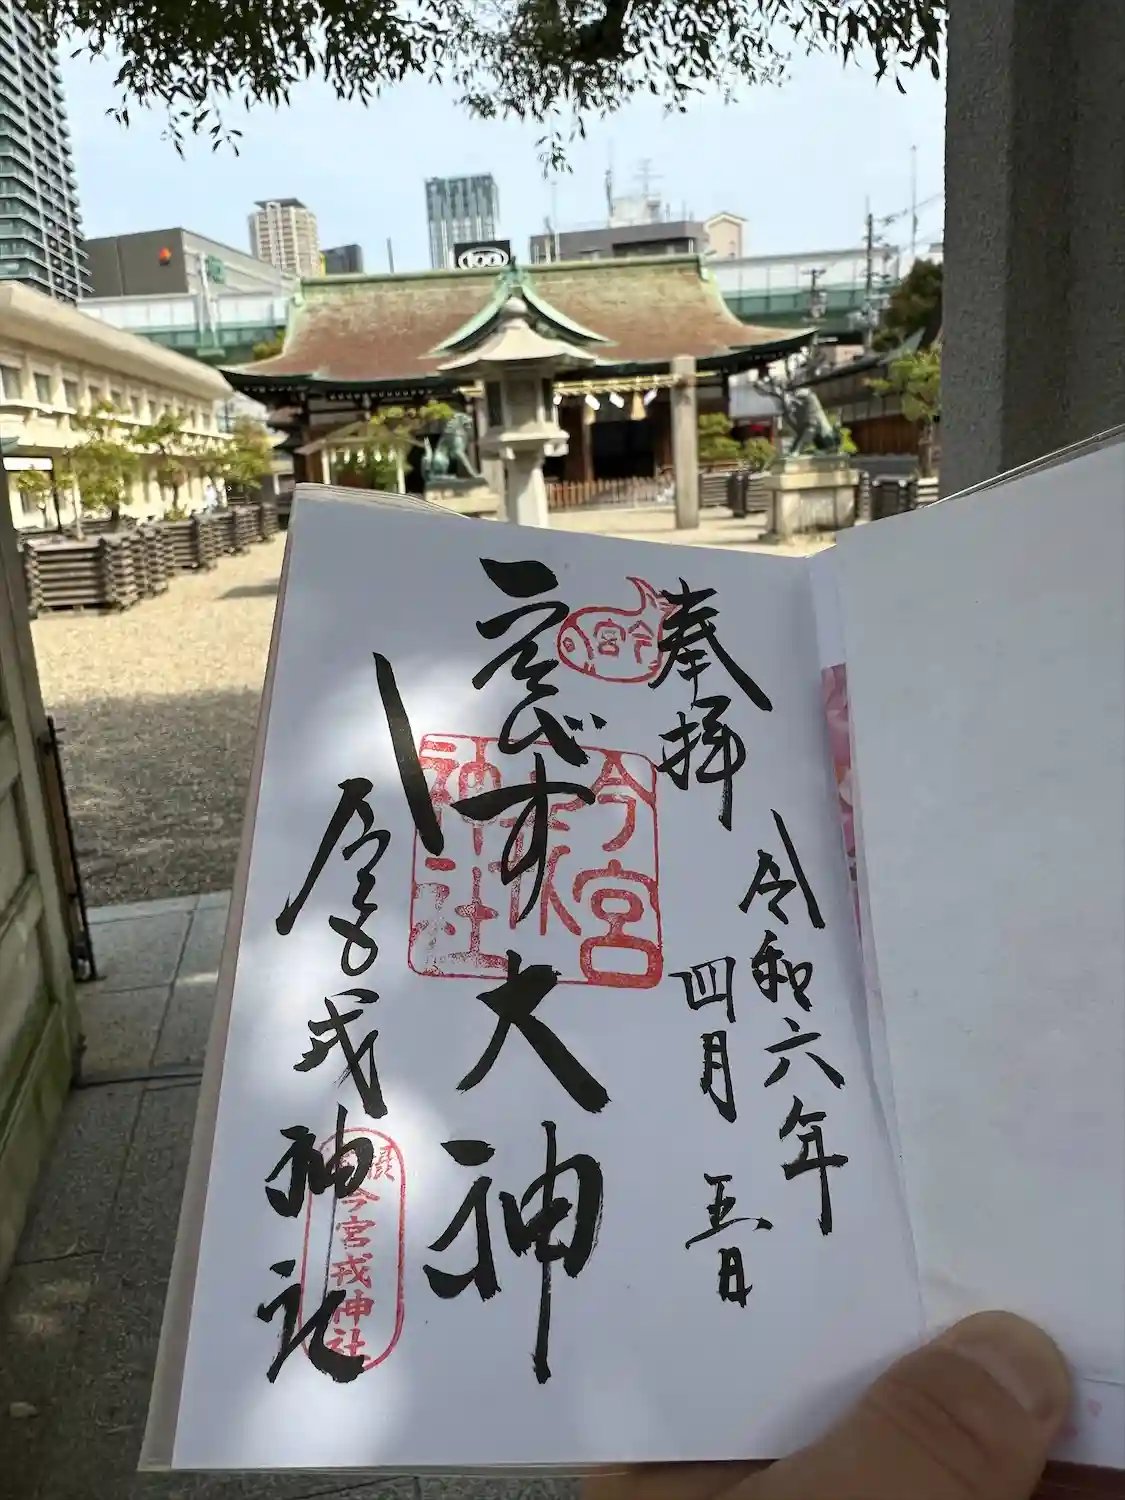 奉拝
令和六年
四月五日
ゑびす大神
今宮戎神社
今宮
今宮戎神社
今宮戎神社
100